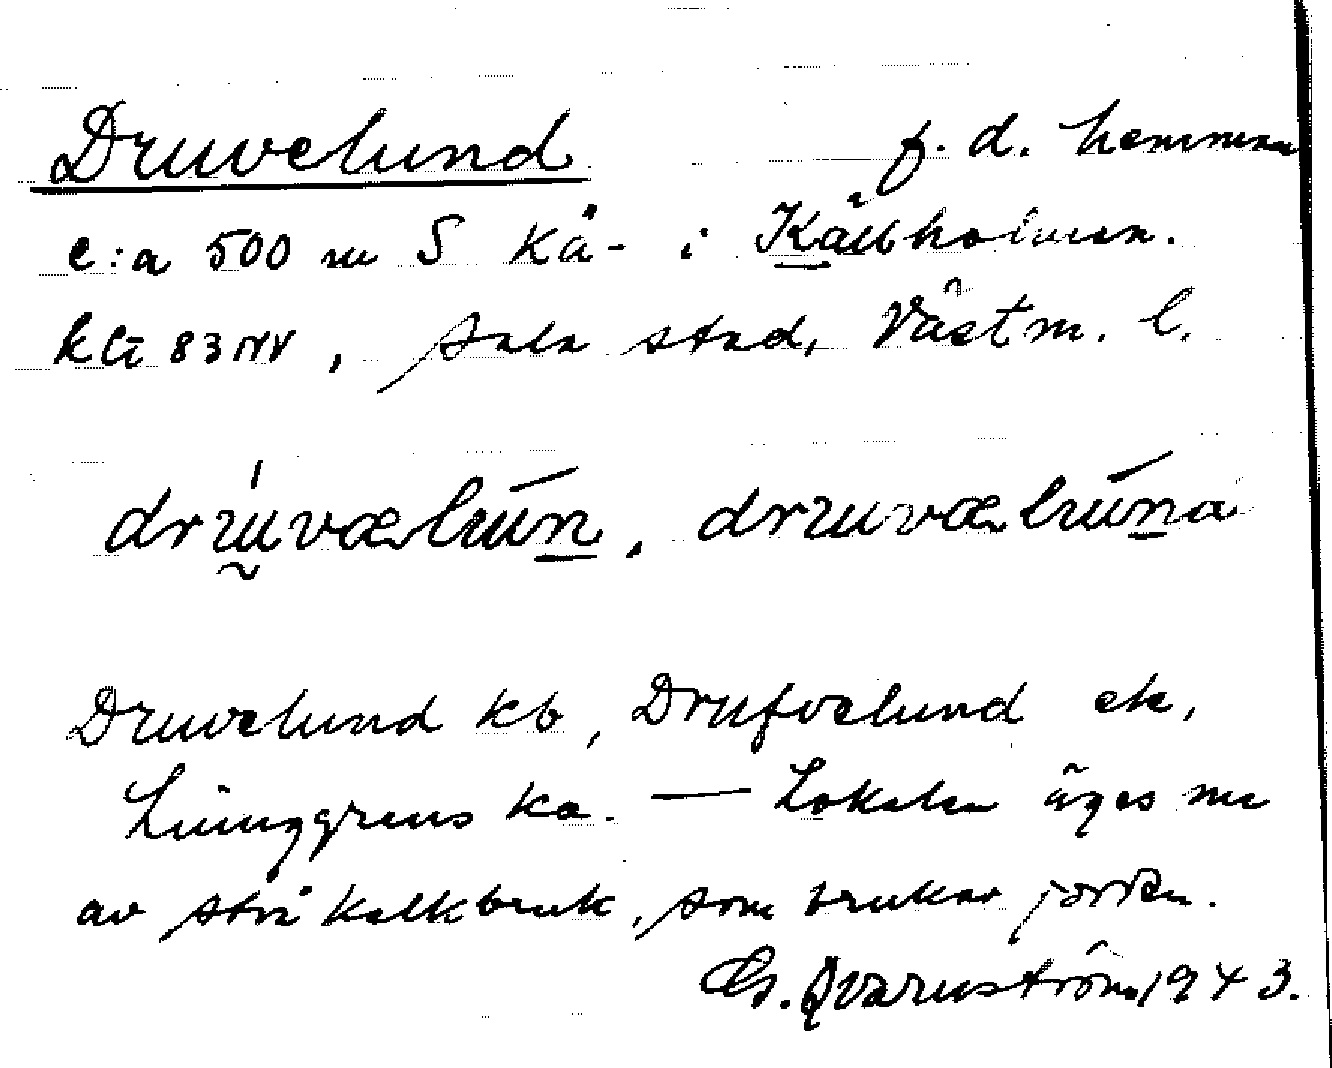 Druvelund f. d. hemman
c:a 500 m S Kå- i Kålbholmen.
83 NV, Sala stad, Västm. l.
drúvælún, druvælúna
Druvelund kb, Drufvelund ek,
Ljunggrens ka. — Lokalen äges nu
av Strå kalkbruk, som brukar jorden.
G. Qvarnström 1943.